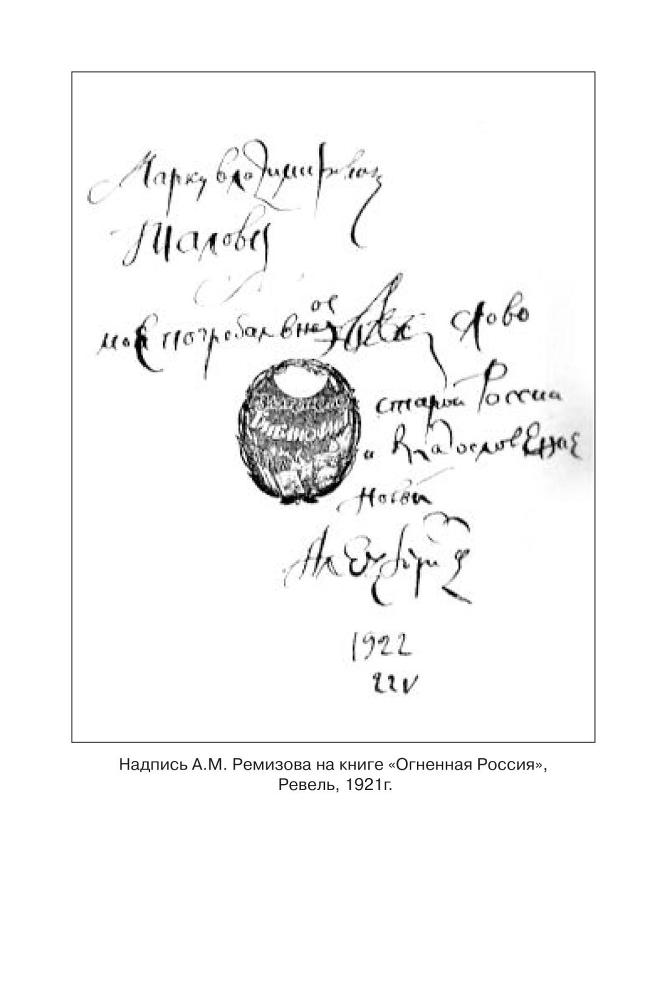 Марку Владимировичу
Талову
мое погребальное слово
старой России
и благословение
новой
1922
22 V
Надпись А.М. Ремизова на книге «Огненная Россия»,
Ревель, 1921г.